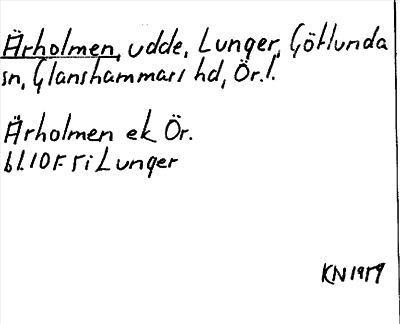 Ärholmen, udde, Lunger, Götlunda
sn, Glanshammars hd, Ör.l.
Ärholmen ek Ör.
bl.10F 5i Lunger
KN1959